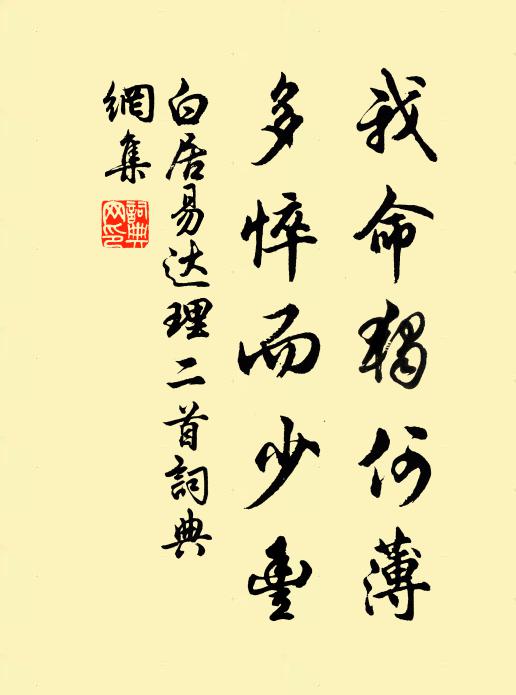 我命獨何薄
多悴而少豊
白居易达理二首詞典
網集
詞典網印